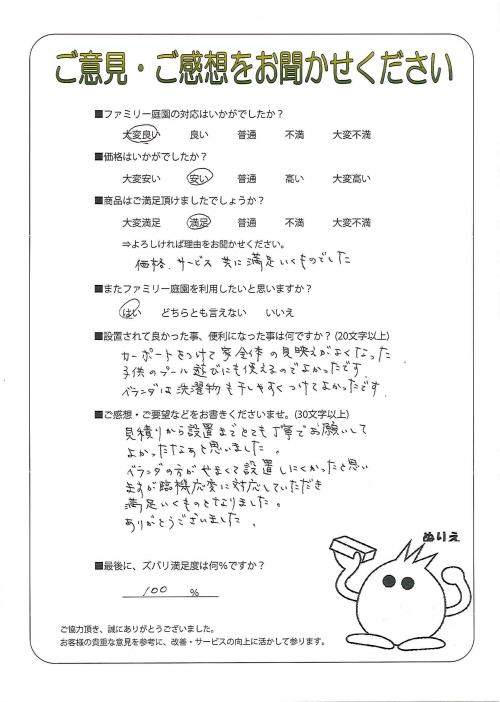 ご意見・ご感想をお聞かせください
■ファミリー庭園の対応はいかがでしたか？
大変良い 良い 普通 不満 大変不満
■価格はいかがでしたか？
大変安い 安い 普通 高い 大変高い
■商品はご満足頂けましたでしょうか？
大変満足 満足 普通 不満 大変不満
⇒よろしければ理由をお聞かせください。
価格、サービス 共に満足いくものでした
■またファミリー庭園を利用したいと思いますか？
はい どちらとも言えない いいえ
■設置されて良かった事、便利になった事は何ですか？(20文字以上)
カーポートをつけて家全体の見映えがよくなった
子供のプール遊びにも使えるのでよかったです
ベランダは洗濯物も干しやすくつけてよかったです
■ご感想・ご要望などをお書きくださいませ。(30文字以上)
見積りから設置までとても丁寧でお願いして
よかったなぁと思いました。
ベランダの方がせまくて設置しにくかったと思い
ますが臨機応変に対応していただき
満足いくものとなりました。
ありがとうございました。
ぬりえ
■最後に、ズバリ満足度は何%ですか？
100 %
ご協力頂き、誠にありがとうございました。
お客様の貴重な意見を参考に、改善・サービスの向上に活かして参ります。